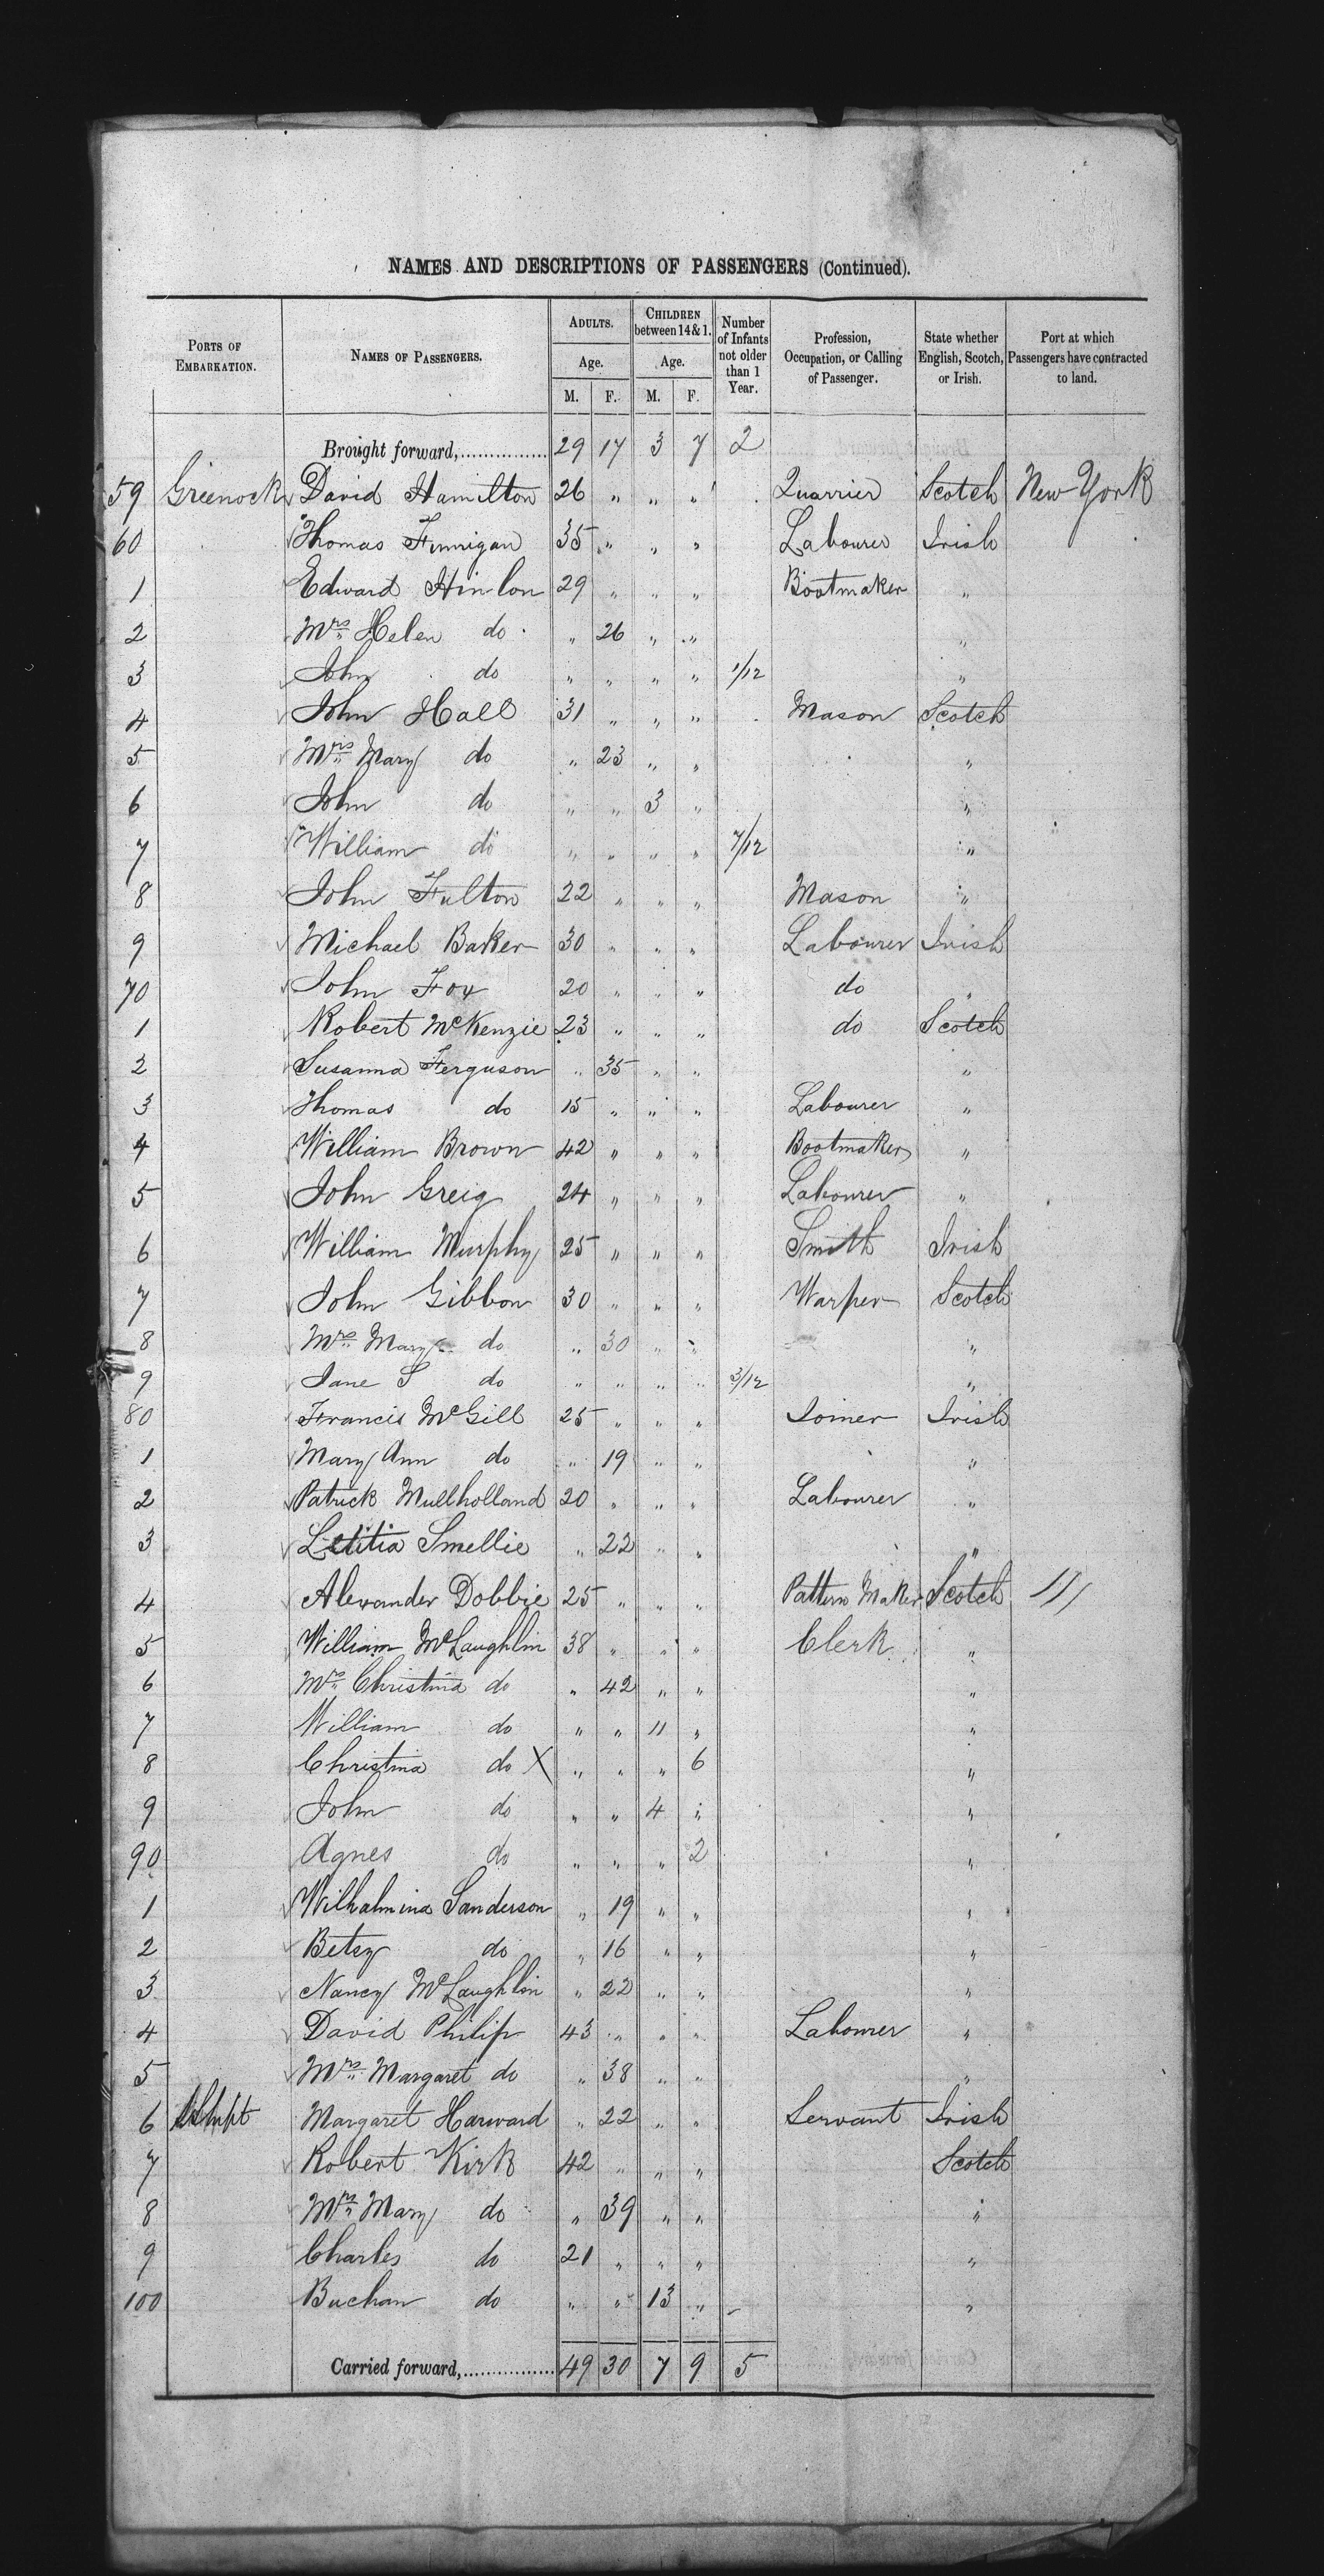 NAMES AND DESCRIPTIONS OF PASSENGERS (Continued).
PORTS OF EMBARKATION. NAMES OF PASSENGERS. ADULTS. Age. M. F. CHILDREN between 14 & 1. Age. M. F. Number of Infants not older than 1 Year. Profession, Occupation, or Calling of Passenger. State whether English, Scotch, or Irish. Port at which Passengers have contracted to land.
Brought forward, 29 17 3 7 2
59 Greenock David Hamilton 26 " " " Quarrier Scotch New York
60 Thomas Finnigan 35 " " " Labourer Irish
1 Edward Hinlon 29 " " " Bootmaker "
2 Mrs Helen do " 26 " " "
3 John do " " " " 1/12 "
4 John Hall 31 " " " Mason Scotch
5 Mrs Mary do " 23 " " "
6 John do " " 3 " "
7 William do " " " " 7/12 "
8 John Fulton 22 " " " Mason "
9 Michael Baker 30 " " " Labourer Irish
70 John Fox 20 " " " do "
1 Robert McKenzie 23 " " " do Scotch
2 Susanna Ferguson " 35 " " "
3 Thomas do 15 " " " Labourer "
4 William Brown 42 " " " Bootmaker "
5 John Greig 24 " " " Labourer "
6 William Murphy 25 " " " Smith Irish
7 John Gibbon 30 " " " Warper Scotch
8 Mrs Mary do " 30 " " "
9 Jane S do " " " " 3/12 "
80 Francis McGill 25 " " " Joiner Irish
1 Mary Ann do " 19 " " "
2 Patrick Mullholland 20 " " " Labourer "
3 Letitia Smellie " 22 " " "
4 Alexander Dobbie 25 " " " Pattern Maker Scotch
5 William McLaughlin 38 " " " Clerk "
6 Mrs Christina do " 42 " " "
7 William do " " 11 " "
8 Christina do X " " " 6 "
9 John do " " 4 " "
90 Agnes do " " " 2 "
1 Wilhalmina Sanderson " 19 " " "
2 Betsy do " 16 " " "
3 Nancy McLaughlin " 22 " " "
4 David Philip 43 " " " Labourer "
5 Mrs Margaret do " 38 " " "
6 Margaret Harward " 22 " " Servant Irish
7 Robert Kirk 42 " " " Scotch
8 Mrs Mary do " 39 " " "
9 Charles do 21 " " " "
100 Buchan do " " 13 " "
Carried forward, 49 30 7 9 5